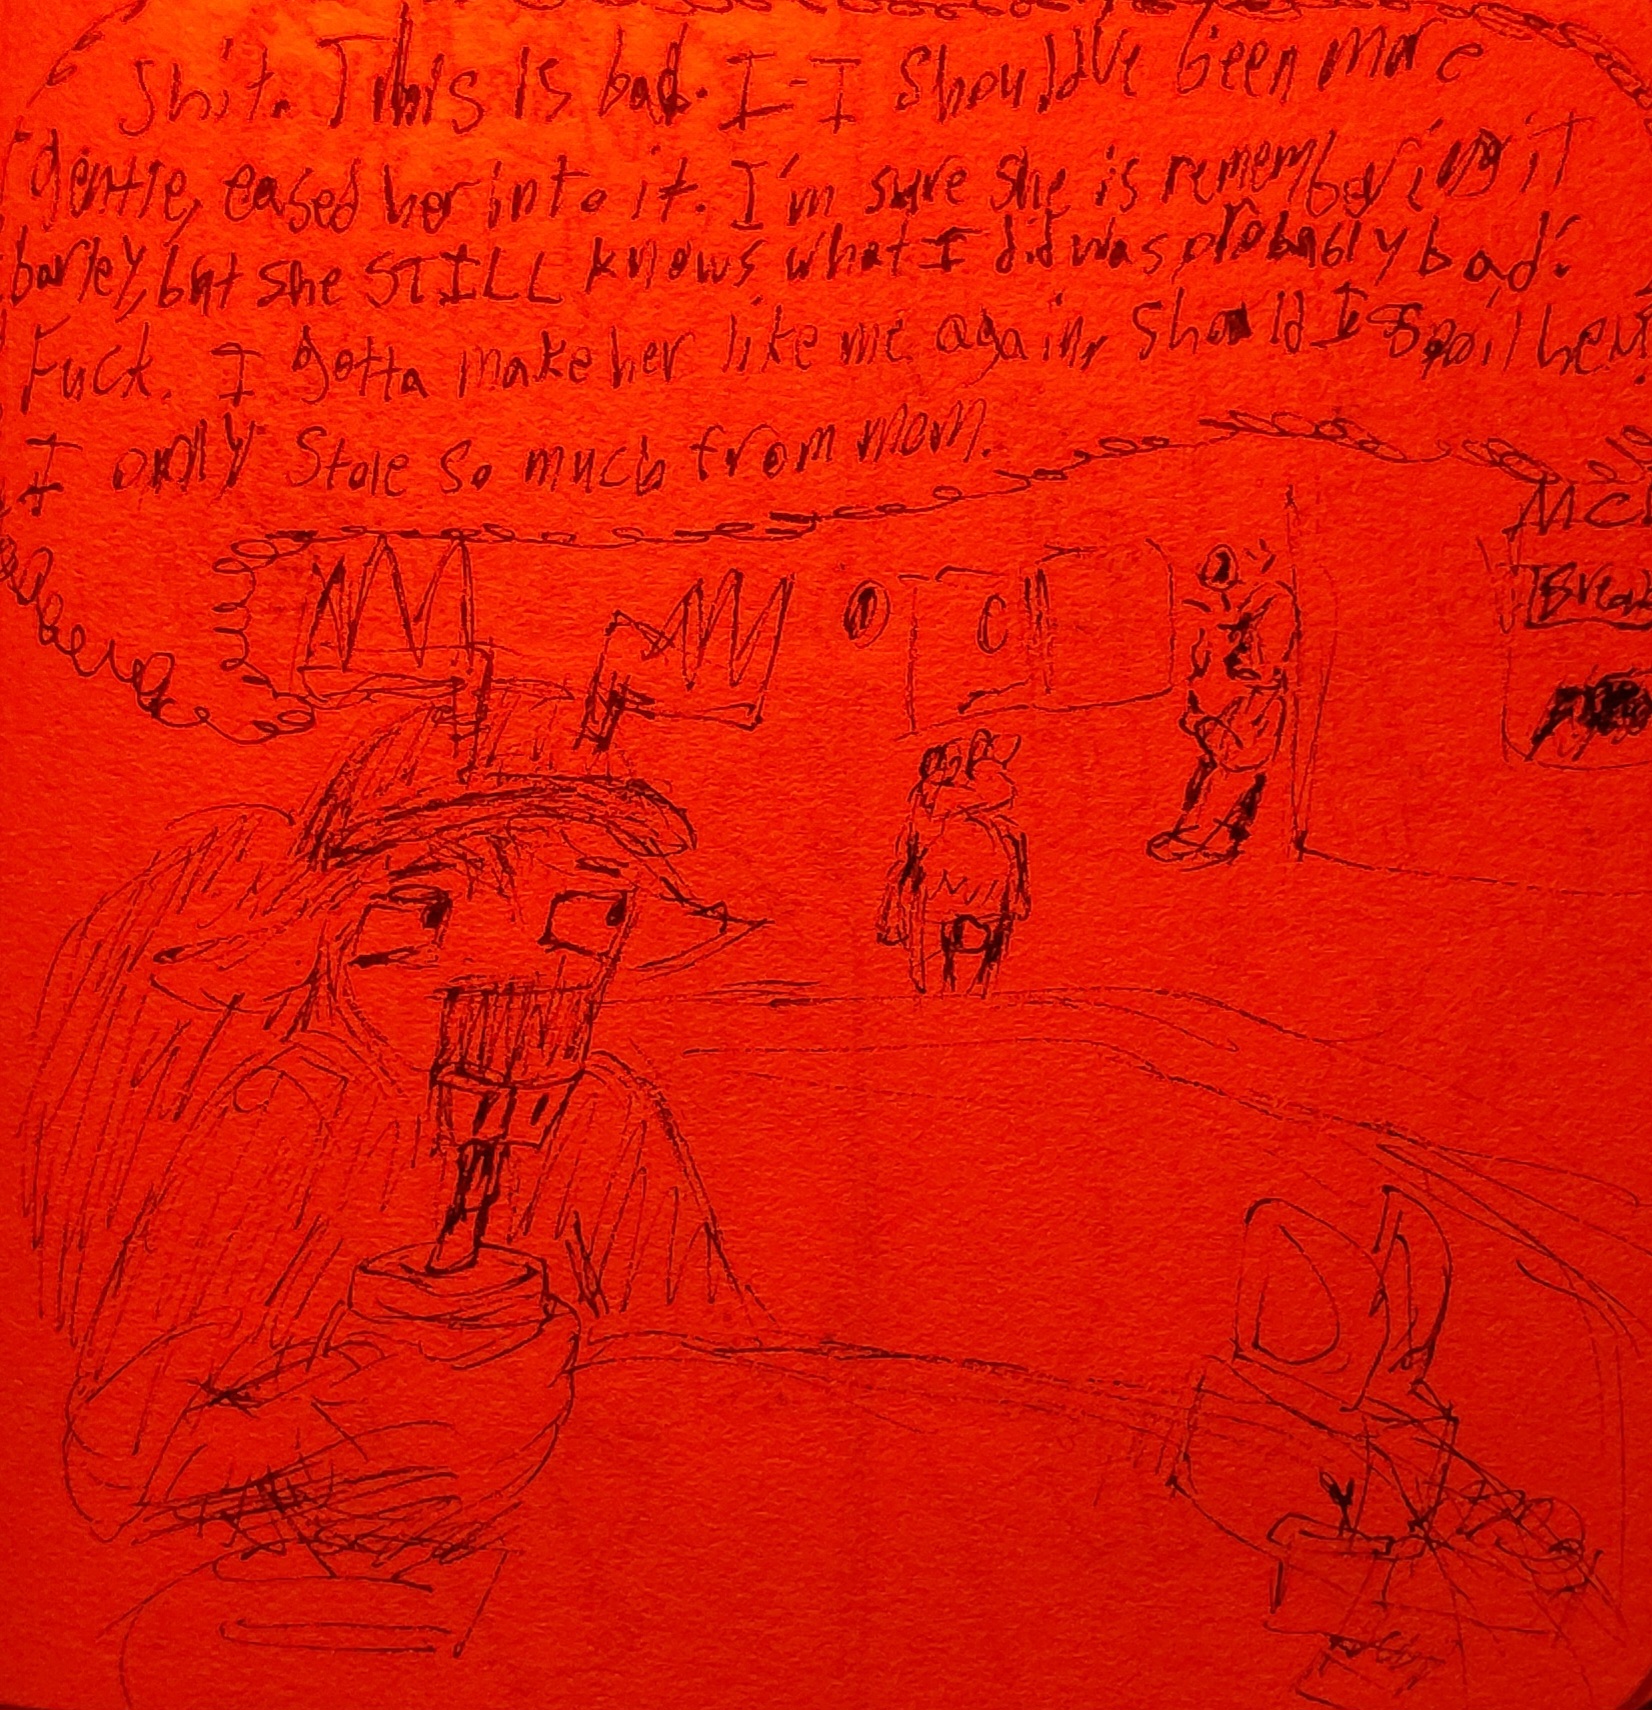 Shit. This is bad. I-I Should've been more
gentle, eased her into it. I'm sure she is remembering it
barley, but she STILL knows what I did was probably bad.
Fuck. I gotta make her like me again, Should I Spoil her?
I only Stole so much from mom.
MC
Brea